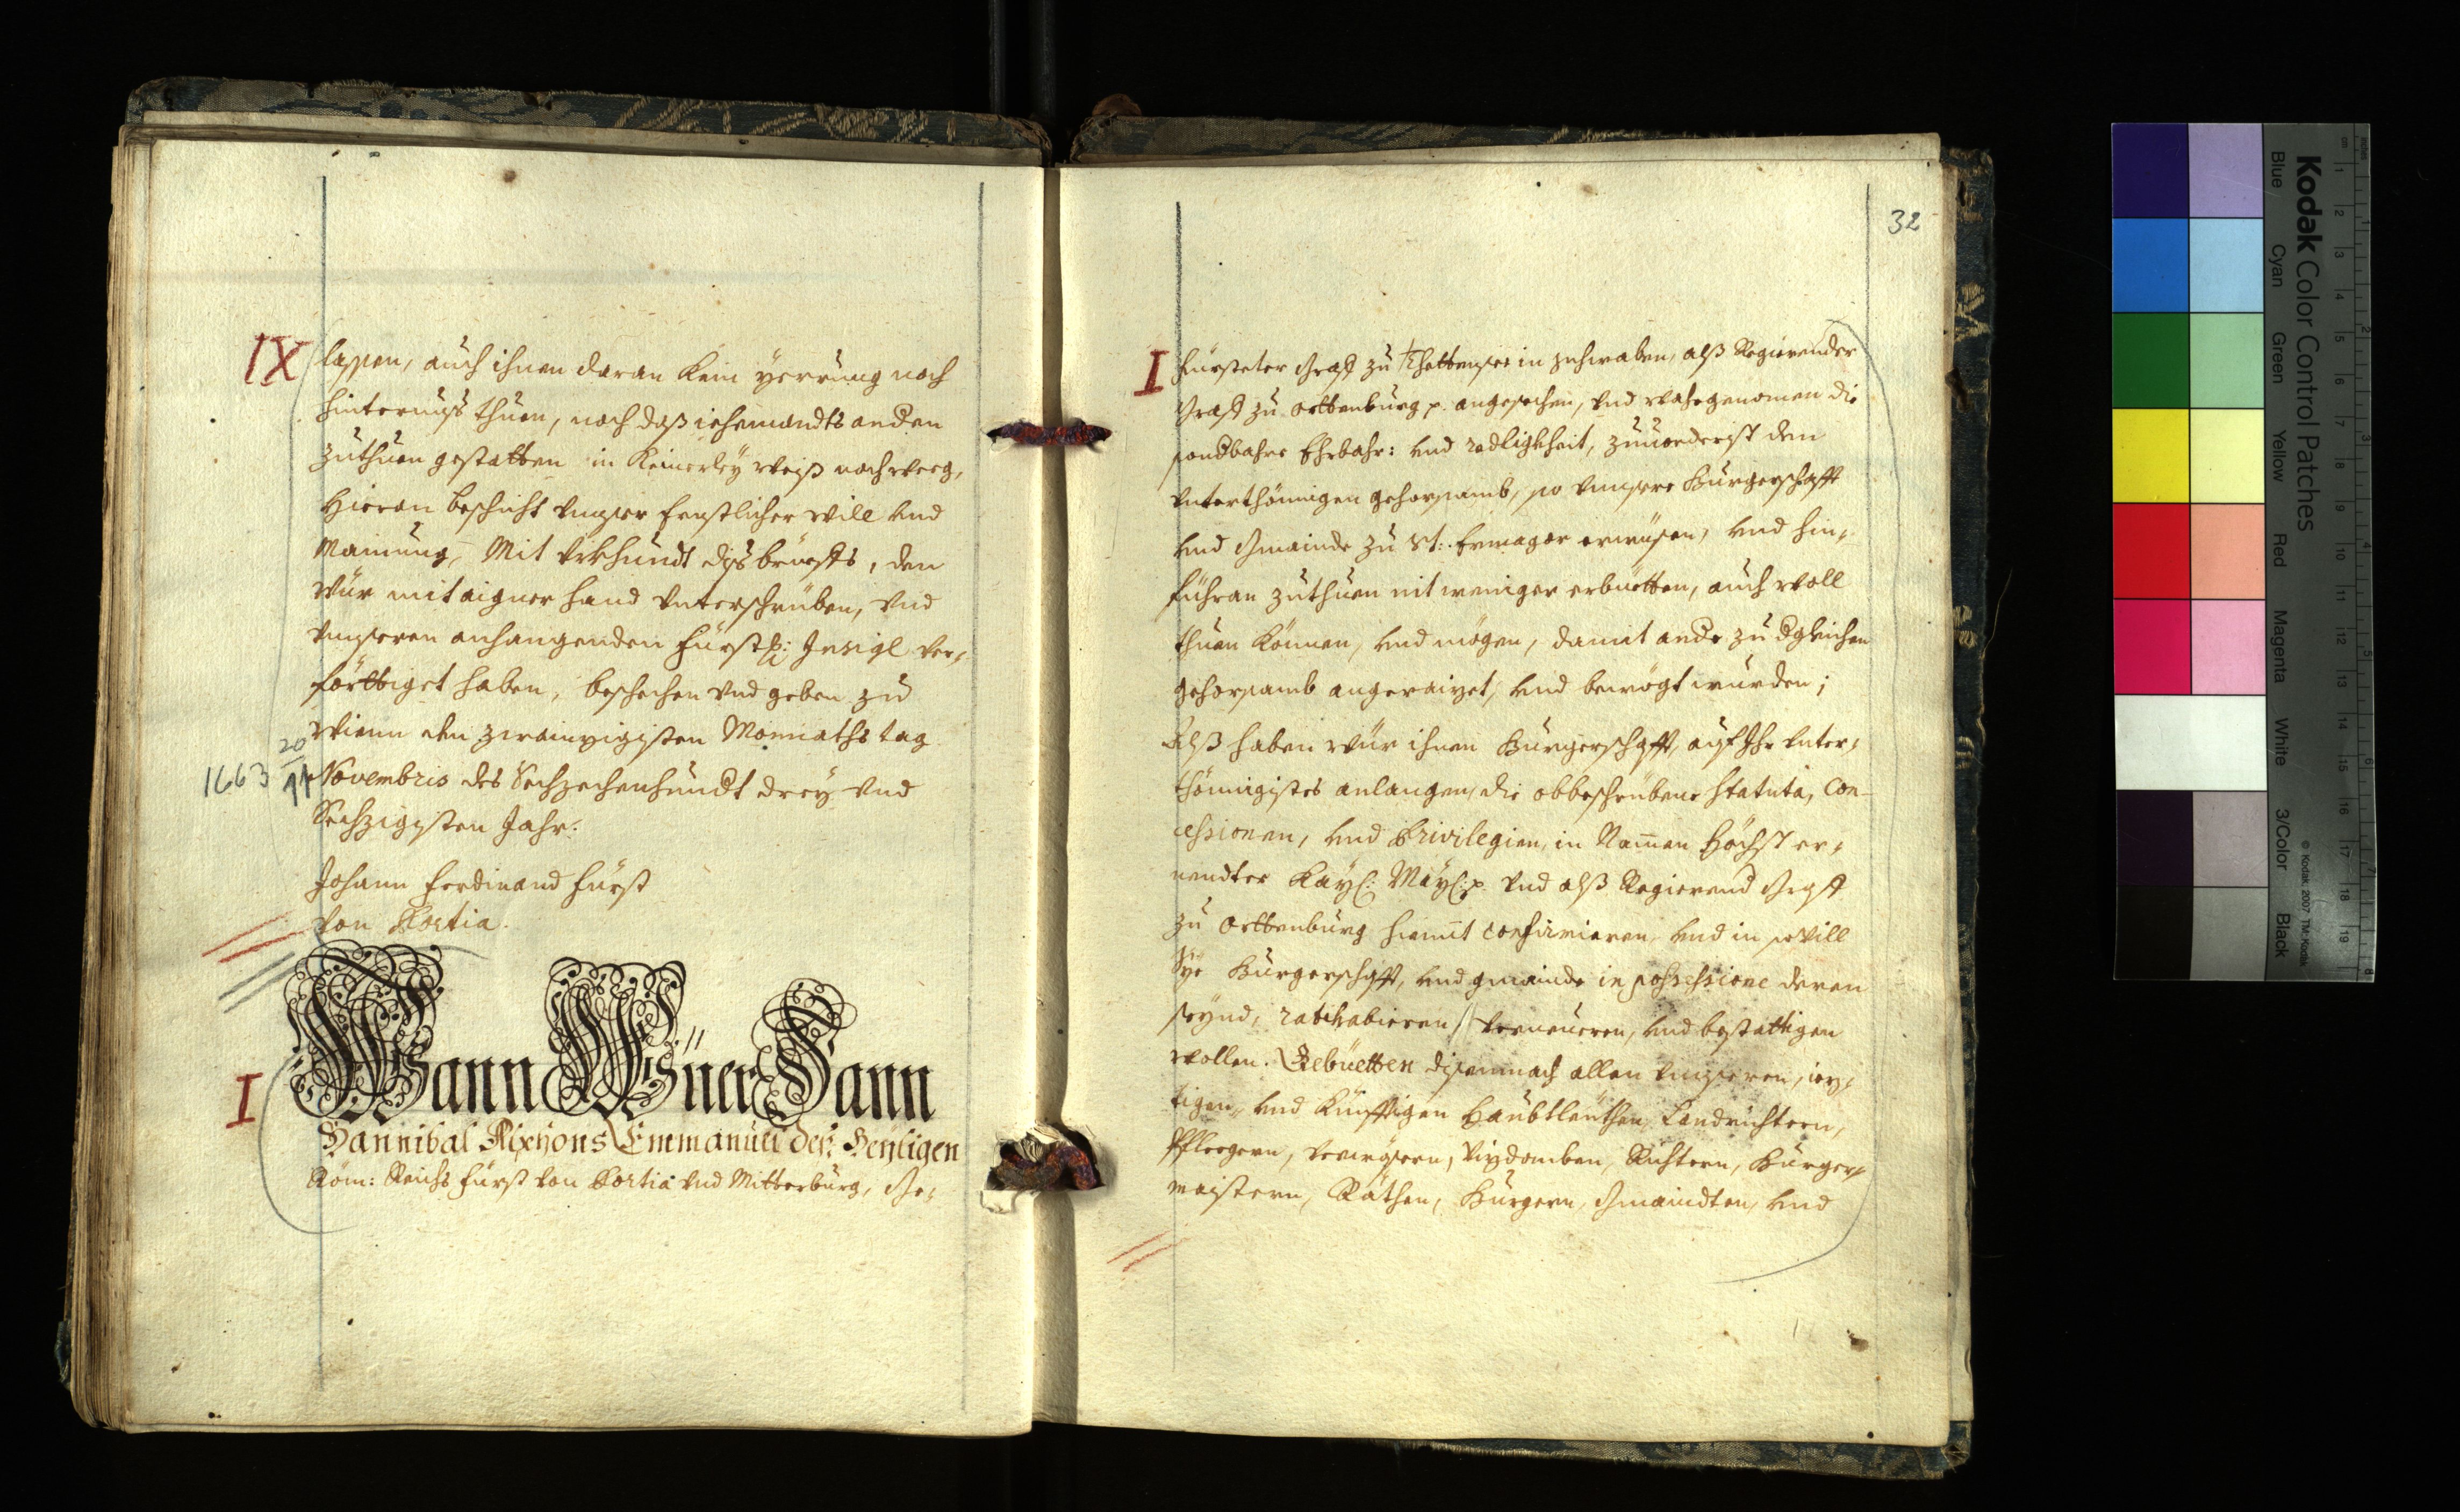 IX
lassen, auch ihnen daran kein yerrung noch
hinternuß thuen, noch daß iehemandts anden
zuthuen gestatten in keinerley weiß noch weeg,
Hieran beschicht unser Ernstlicher will und
Mainung, Mit Urkhundt diß brieffs, den
Wür mit aigner hand unterschrüben, und
unseren anhangenden Fürstl: Insigl ver-
förttiget haben, beschechen und geben zu
Wienn den zwainzigisten Monnaths tag
20
1663 11
Novembris des Sechzechenhundt drey und
Sechzigisten Jahr.
Johann Ferdinand Fürst
von Portia.
I
Wann Wüner Hann
Hannibal Alphons Emmanuel deß: Heyligen
Röm: Reichs Fürst von Portia und Mitterburg, Ge-
32
I
Fürsteter Graff zu Thettensee in Schwaben, alß Regierender
Graff zu Orttenburg p. angesechen, und wahrgenomen die
sondbahre Ehrbahr: und redligkheit, zuuorderist den
unterthönnigen gehorsamb, so unnsere Burgerschafft
und Gmainde zu St: Ermagor erwüsen, und hin-
führan zuthuen nit weniger erbüetten, auch woll
thuen können, und mögen, damit ande zu dgleichen
gehorsamb angeraizet, und bewögt wurden;
Alß haben wür ihnen Burgerschafft, auf Ihr unter-
thönnigistes anlangen, die obbeschrübene statuta, Con-
cessionen, und Privilegien, in Namen höchst er-
nendter Kayß: Mayß: p. und alß Regierend Graff
zu Orttenburg hiemit confirmieren, und in sovill
Sye Burgerschafft, und gmainde in possessione deren
seynd, ratihabieren, verneueren, und bestättigen
wollen. Gebüetten disemnach allen unnseren, iez-
tigen, und künfftigen Haubtleuthen, Landrichtern,
Pflegern, verwösern, Vizdomben, Richtern, Burger-
maistern, Räthen, Burgern, Gmaindten, und